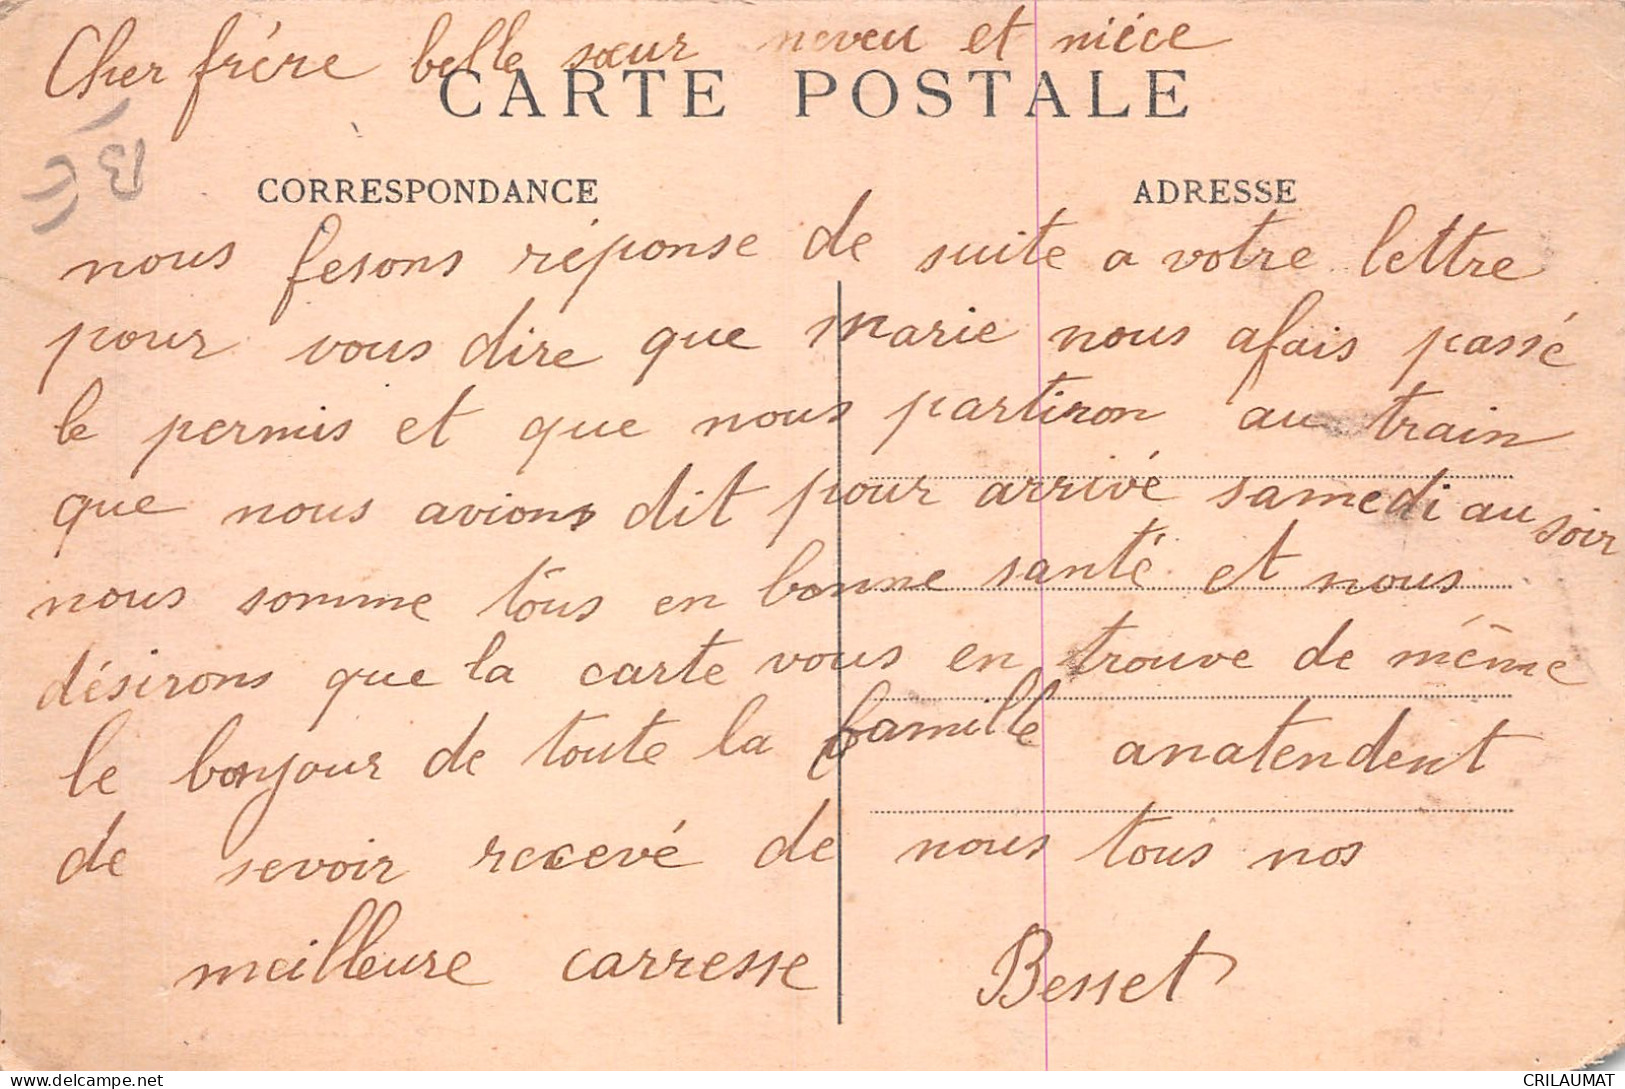 Cher frére belle sœur neveu et niéce
CARTE POSTALE
CORRESPONDANCE
ADRESSE
nous fesons réponse de suite a votre lettre
pour vous dire que Marie nous afais passé
le permis et que nous partiron au train
que nous avions dit pour arrivé samedi au soir
nous somme tous en bonne santé et nous
désirons que la carte vous en trouve de même
le bonjour de toute la famille anatendent
de sevoir recevé de nous tous nos
meilleure carresse Besset
CRILAUMAT